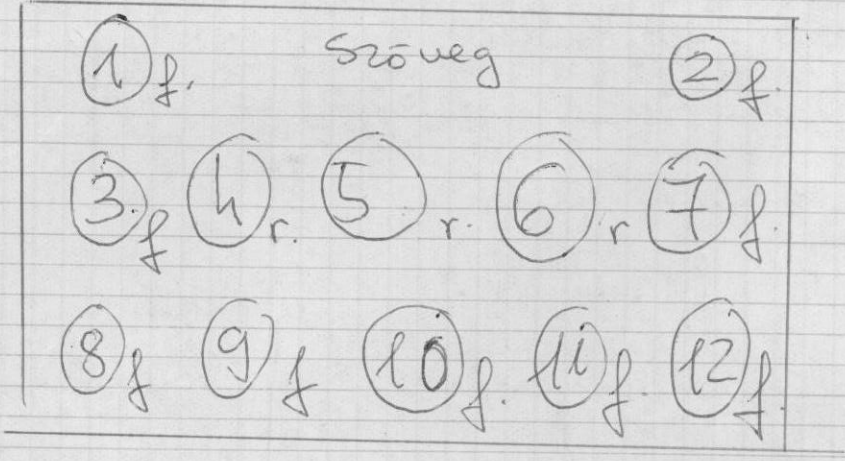 1 f. Szöveg 2 f.
3. f 4 r. 5 r. 6 r 7 f.
8 f 9 f 10 f. 11 f. 12 f.